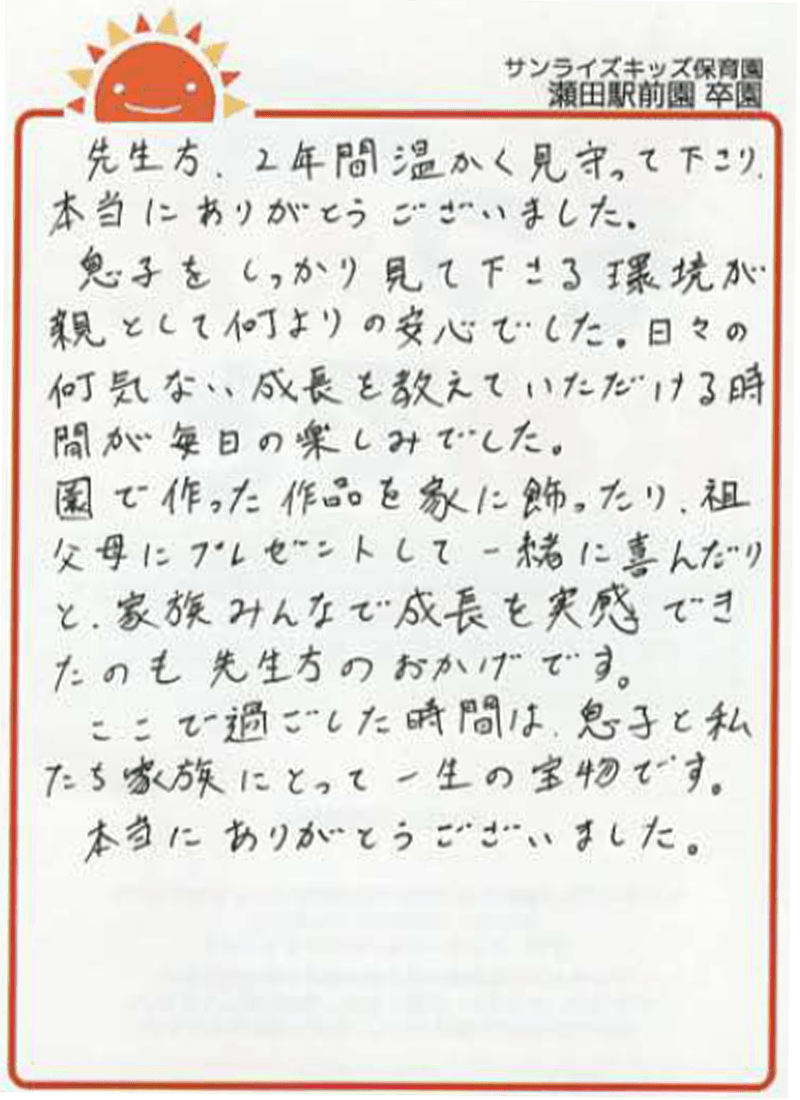 サンライズキッズ保育園
瀬田駅前園 卒園
先生方、2年間温かく見守って下さり、
本当にありがとうございました。
息子をしっかり見て下さる環境が
親として何よりの安心でした。日々の
何気ない成長を教えていただける時
間が毎日の楽しみでした。
園で作った作品を家に飾ったり、祖
父母にプレゼントして一緒に喜んだり
と、家族みんなで成長を実感でき
たのも先生方のおかげです。
ここで過ごした時間は、息子と私
たち家族にとって一生の宝物です。
本当にありがとうございました。